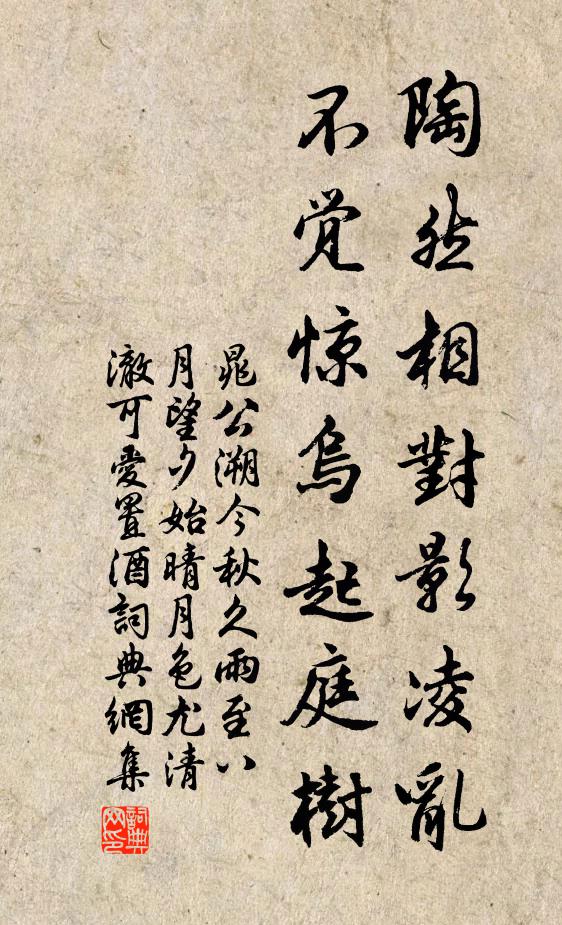 陶然相對影凌亂
不觉惊烏起庭樹
晁公溯今秋久雨至八
月望夕始晴月色尤清
澈可愛置酒詞典網集
詞典网印